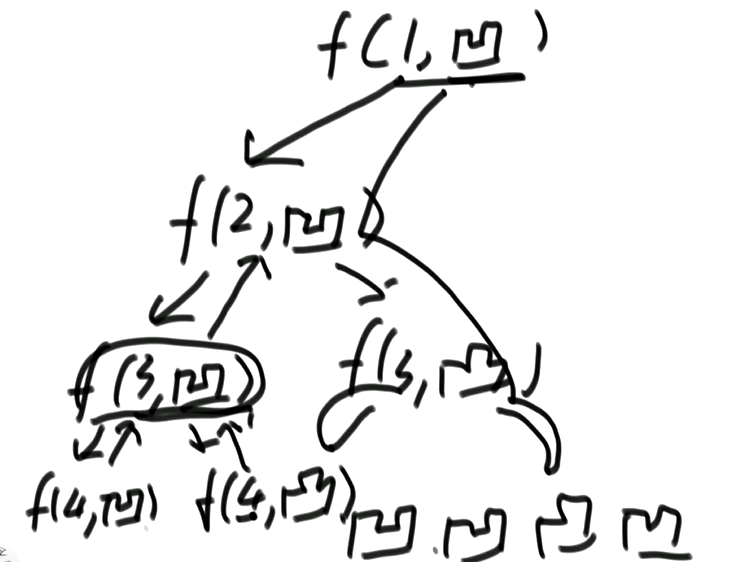 f(1, )
f(2, )
f(3, ) f(3, )
f(4, ) f(4, )